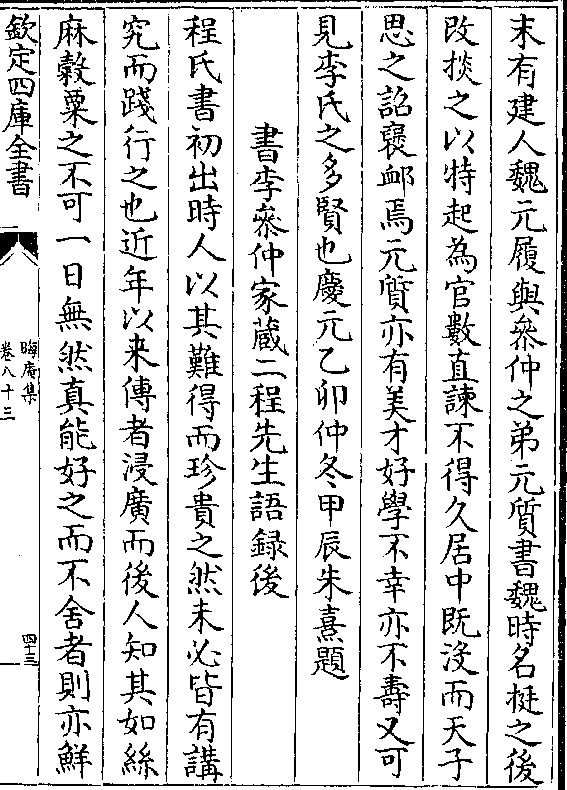 末有建人魏元履與叅仲之弟元質書魏時名挺之後
改掞之以特起為官數直諫不得久居中既没而天子
思之詔襃䘏焉元質亦有美才好學不幸亦不壽又可
見李氏之多賢也慶元乙卯仲冬甲辰朱熹題
書李叅仲家蔵二程先生語録後
程氏書初出時人以其難得而珍貴之然未必皆有講
究而踐行之也近年以来傳者浸廣而後人知其如絲
麻穀粟之不可一日無然真能好之而不舍者則亦鮮
欽定四庫全書
晦庵集
卷八十三
四十三